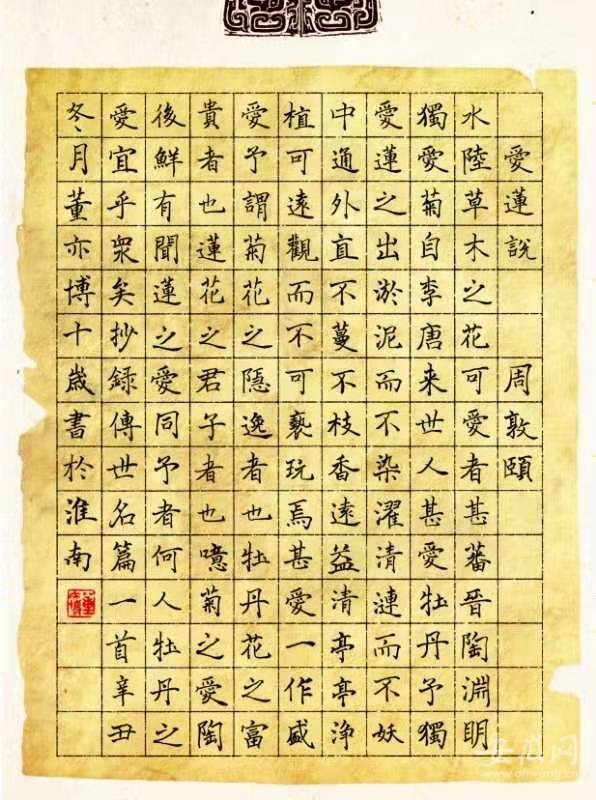 愛蓮說 周敦頤
水陸草木之花可愛者甚蕃晉陶淵明
獨愛菊自李唐來世人甚愛牡丹予獨
愛蓮之出淤泥而不染濯清漣而不妖
中通外直不蔓不枝香遠益清亭亭淨
植可遠觀而不可褻玩焉甚愛一作盛
愛予謂菊花之隱逸者也牡丹花之富
貴者也蓮花之君子者也噫菊之愛陶
後鮮有聞蓮之愛同予者何人牡丹之
愛宜乎衆矣抄録傳世名篇一首辛丑
冬月董亦博十歲書於淮南
安徽网
www.ahwang.cn